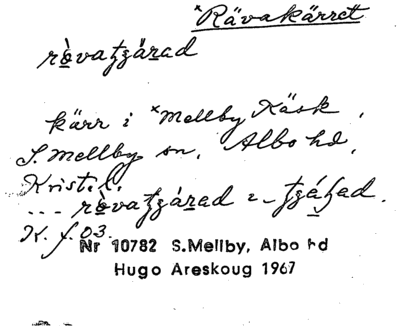 *Rävakärret
ròvatʒárad
kärr i *Mellby Käsk,
S. Mellby sn, Albo hd,
Kristil.
... ròvatʒárad
K. f. 03.
Nr 10782 S.Mellby, Albo hd
Hugo Areskoug 1967